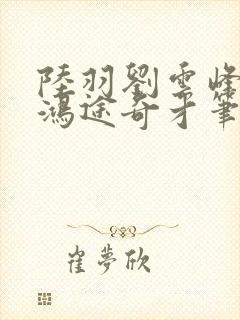 陸羽劉雲峰
鴻途奇才筆
崔夢欣